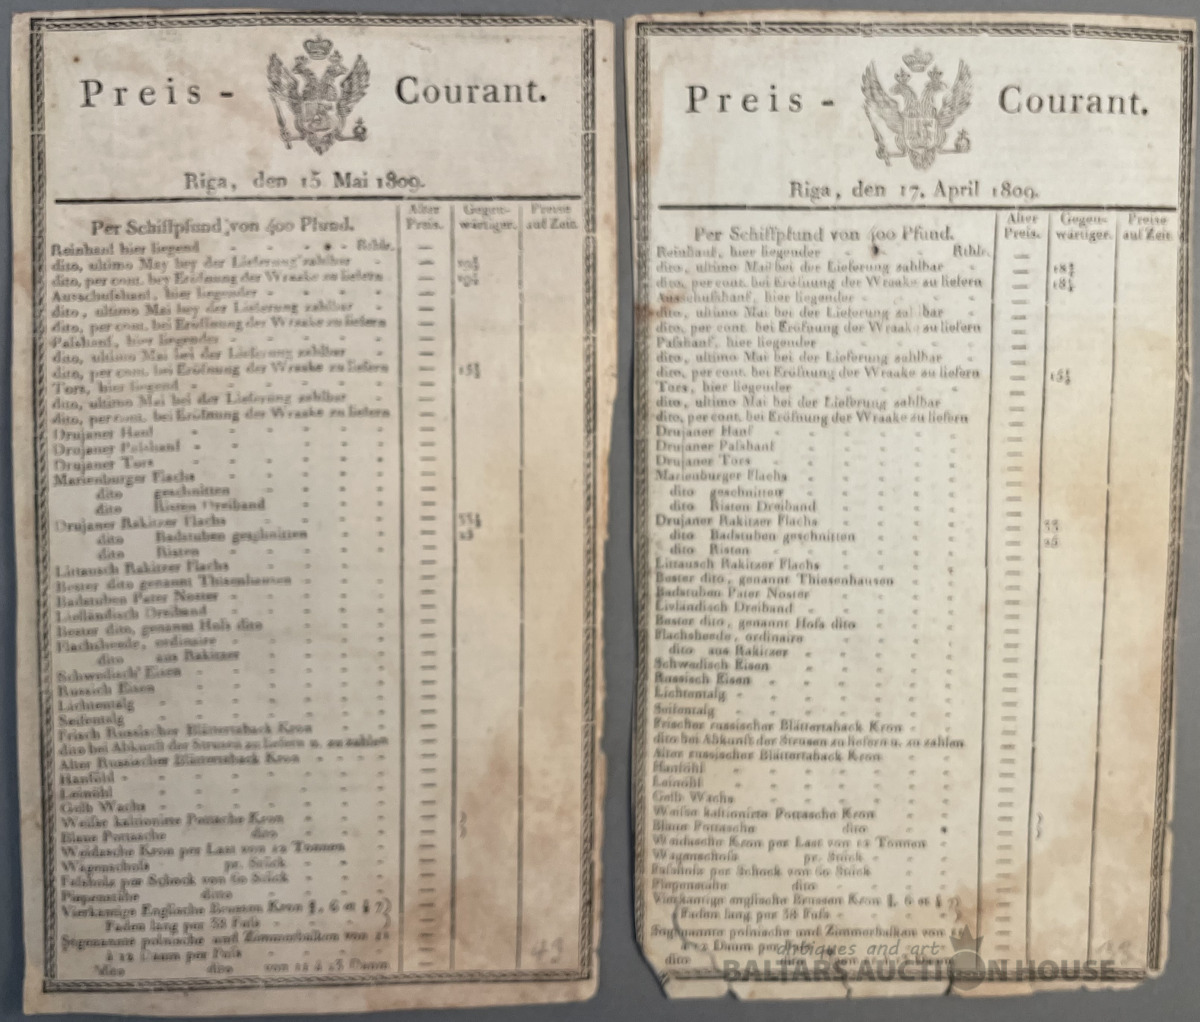 Preis - Courant.
Riga, den 15 Mai 1809.
Alter Preis.
Gegenwärtiger.
Preise auf Zeit.
Per Schiffpfund von 400 Pfund.
Reinhanf hier liegend Rthlr.
dito, ultimo May bey der Lieferung zahlbar
dito, per cont. bey Eröfnung der Wraake zu liefern
Ausschufshanf, hier liegender
dito, ultimo Mai bey der Lieferung zahlbar
dito, per cont. bei Eröfnung der Wraake zu liefern
Pafshanf, hier liegender
dito, ultimo Mai bei der Lieferung zahlbar
dito, per cont. bei Eröfnung der Wraake zu liefern
Tors, hier liegend
dito, ultimo Mai bei der Lieferung zahlbar
dito, per cont. bei Eröfnung der Wraake zu liefern
Drujaner Hanf
Drujaner Pafshanf
Drujaner Tors
Marienburger Flachs
dito geschnitten
dito Risten Dreiband
Drujaner Rakitzer Flachs
dito Badstuben geschnitten
dito Risten
Littausch Rakitzer Flachs
Bester dito genannt Thiesenhausen
Badstuben Pater Noster
Liefländisch Dreiband
Bester dito, genannt Hofs dito
Flachsheede, ordinaire
dito aus Rakitzer
Schwedisch Eisen
Russich Eisen
Lichtentalg
Seifentalg
Frisch Russischer Blättertaback Kron
dito bei Abkunft der Strusen zu liefern u. zu zahlen
Alter Russischer Blättertaback Kron
Hanföhl
Leinöhl
Gelb Wachs
Weifse kaltionirte Pottasche Kron
Blaue Pottasche dito
Weidasche Kron per Last von 12 Tonnen
Wagenschofs pr. Stück
Fafsholz per Schock von 60 Stück
Piepenstäbe ditto
Vierkantige Englische Brussen Kron
Faden lang per 38 Fufs
Sogenannte polnische und Zimmerbalken von 11
à 12 Daum per Fufs
dito dito von 12 à 13 Daum
43
Preis - Courant.
Riga, den 17. April 1809.
Alter Preis.
Gegenwärtiger.
Preise auf Zeit.
Per Schiffpfund von 400 Pfund.
Reinhanf, hier liegender Rthlr.
dito, ultimo Mai bei der Lieferung zahlbar
dito, per cont. bei Eröfnung der Wraake zu liefern
Ausschufshanf, hier liegender
dito, ultimo Mai bei der Lieferung zahlbar
dito, per cont. bei Eröfnung der Wraake zu liefern
Pafshanf, hier liegender
dito, ultimo Mai bei der Lieferung zahlbar
dito, per cont. bei Eröfnung der Wraake zu liefern
Tors, hier liegender
dito, ultimo Mai bei der Lieferung zahlbar
dito, per cont. bei Eröfnung der Wraake zu liefern
Drujaner Hanf
Drujaner Pafshanf
Drujaner Tors
Marienburger Flachs
dito geschnitten
dito Risten Dreiband
Drujaner Rakitzer Flachs
dito Badstuben geschnitten
dito Risten
Littausch Rakitzer Flachs
Bester dito, genannt Thiesenhausen
Badstuben Pater Noster
Livländisch Dreiband
Bester dito, genannt Hofs dito
Flachsheede, ordinaire
dito aus Rakitzer
Schwedisch Eisen
Russisch Eisen
Lichtentalg
Seifentalg
Frischer russischer Blättertaback Kron
dito bei Abkunft der Strusen zu liefern u. zu zahlen
Alter russischer Blättertaback Kron
Hanföhl
Leinöhl
Gelb Wachs
Weifse kaltionirte Pottasche Kron
Blaue Pottasche dito
Weidasche Kron per Last von 12 Tonnen
Wagenschofs pr. Stück
Fafsholz per Schock von 60 Stück
Piepenstäbe dito
Vierkantige englische Brussen Kron
Faden lang per 38 Fufs
Sogenannte polnische und Zimmerbalken von
à 12 Daum per
dito
antiques and art
BALTARS AUCTION HOUSE